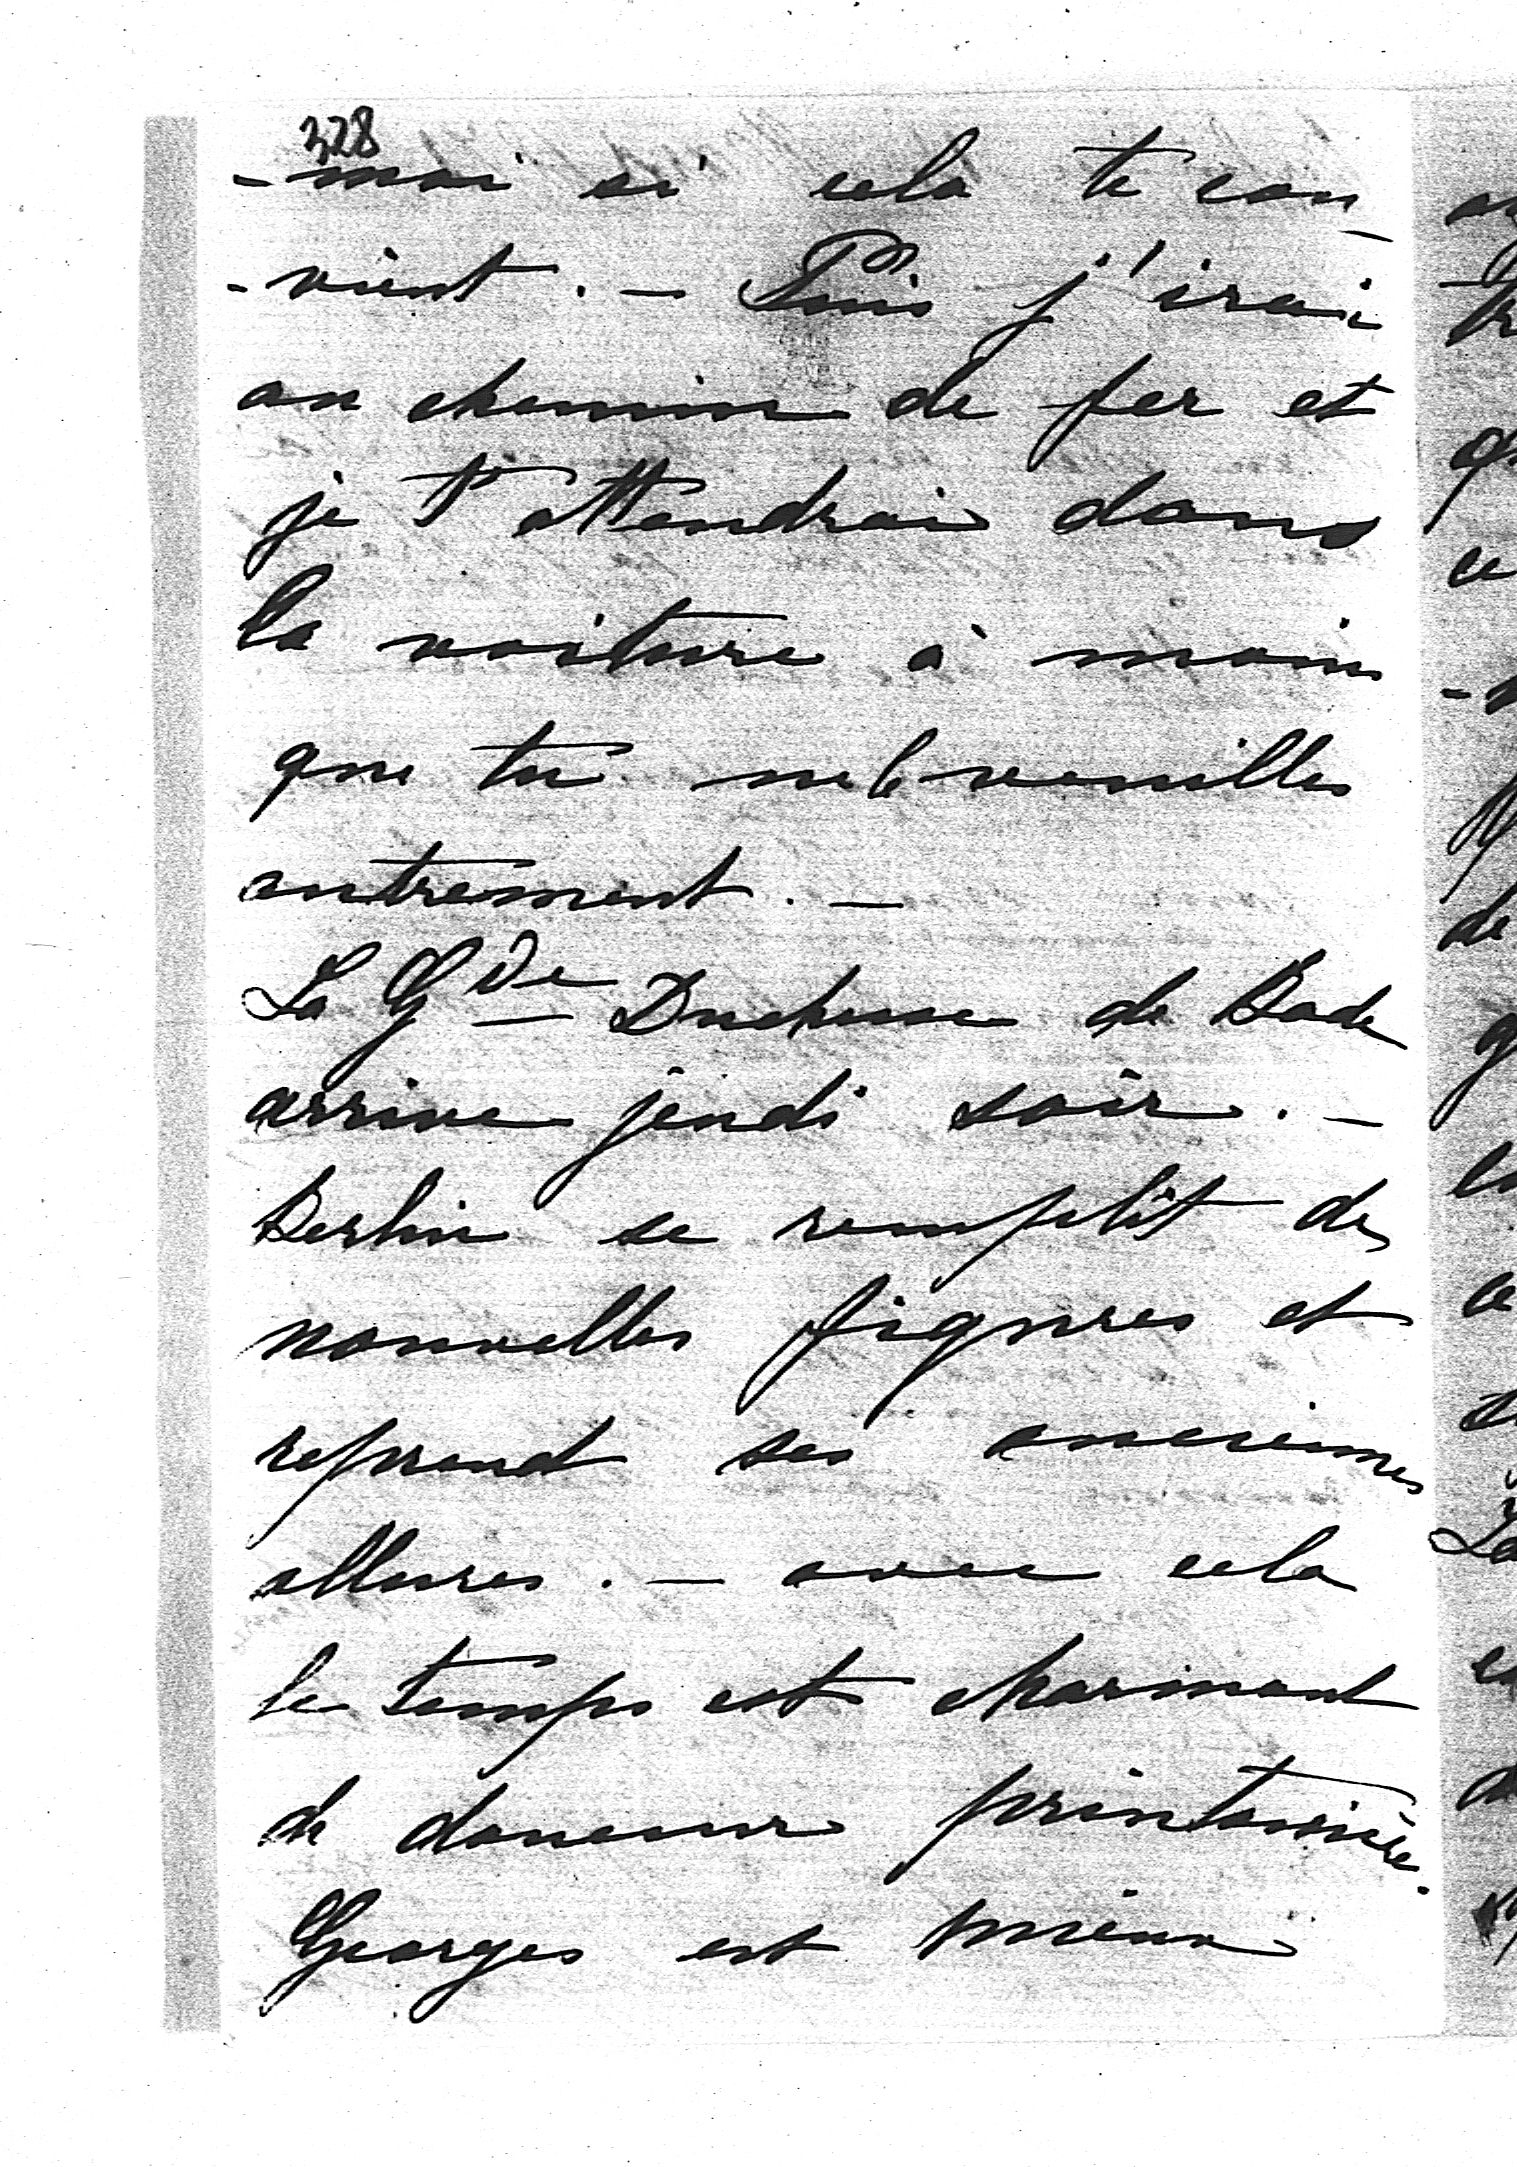 328
-moi si cela te con-
-vient. - Puis j'irai
au chemin de fer et
je t'attendrai dans
la voiture à moins
que tu ne le veuilles
autrement. -
La Gde Duchesse de Bade
arrive jeudi soir. -
Berlin se remplit de
nouvelles figures et
reprend ses anciennes
allures. - avec cela
le temps est charmant
de douceur printanière.
Georges est mieux